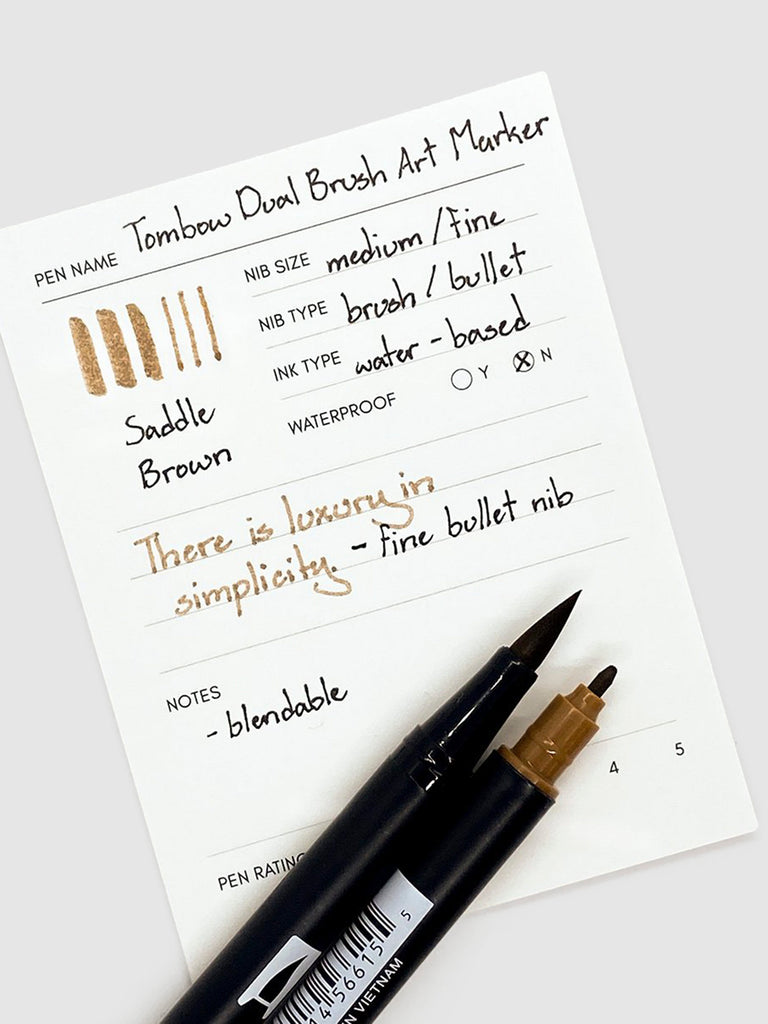 PEN NAME Tombow Dual Brush Art Marker
NIB SIZE medium / fine
NIB TYPE brush / bullet
INK TYPE water - based
WATERPROOF Y N
Saddle
Brown
There is luxury in
simplicity. - fine bullet nib
NOTES
- blendable
4 5
PEN RATING
14 56615 5
N VIETNAM